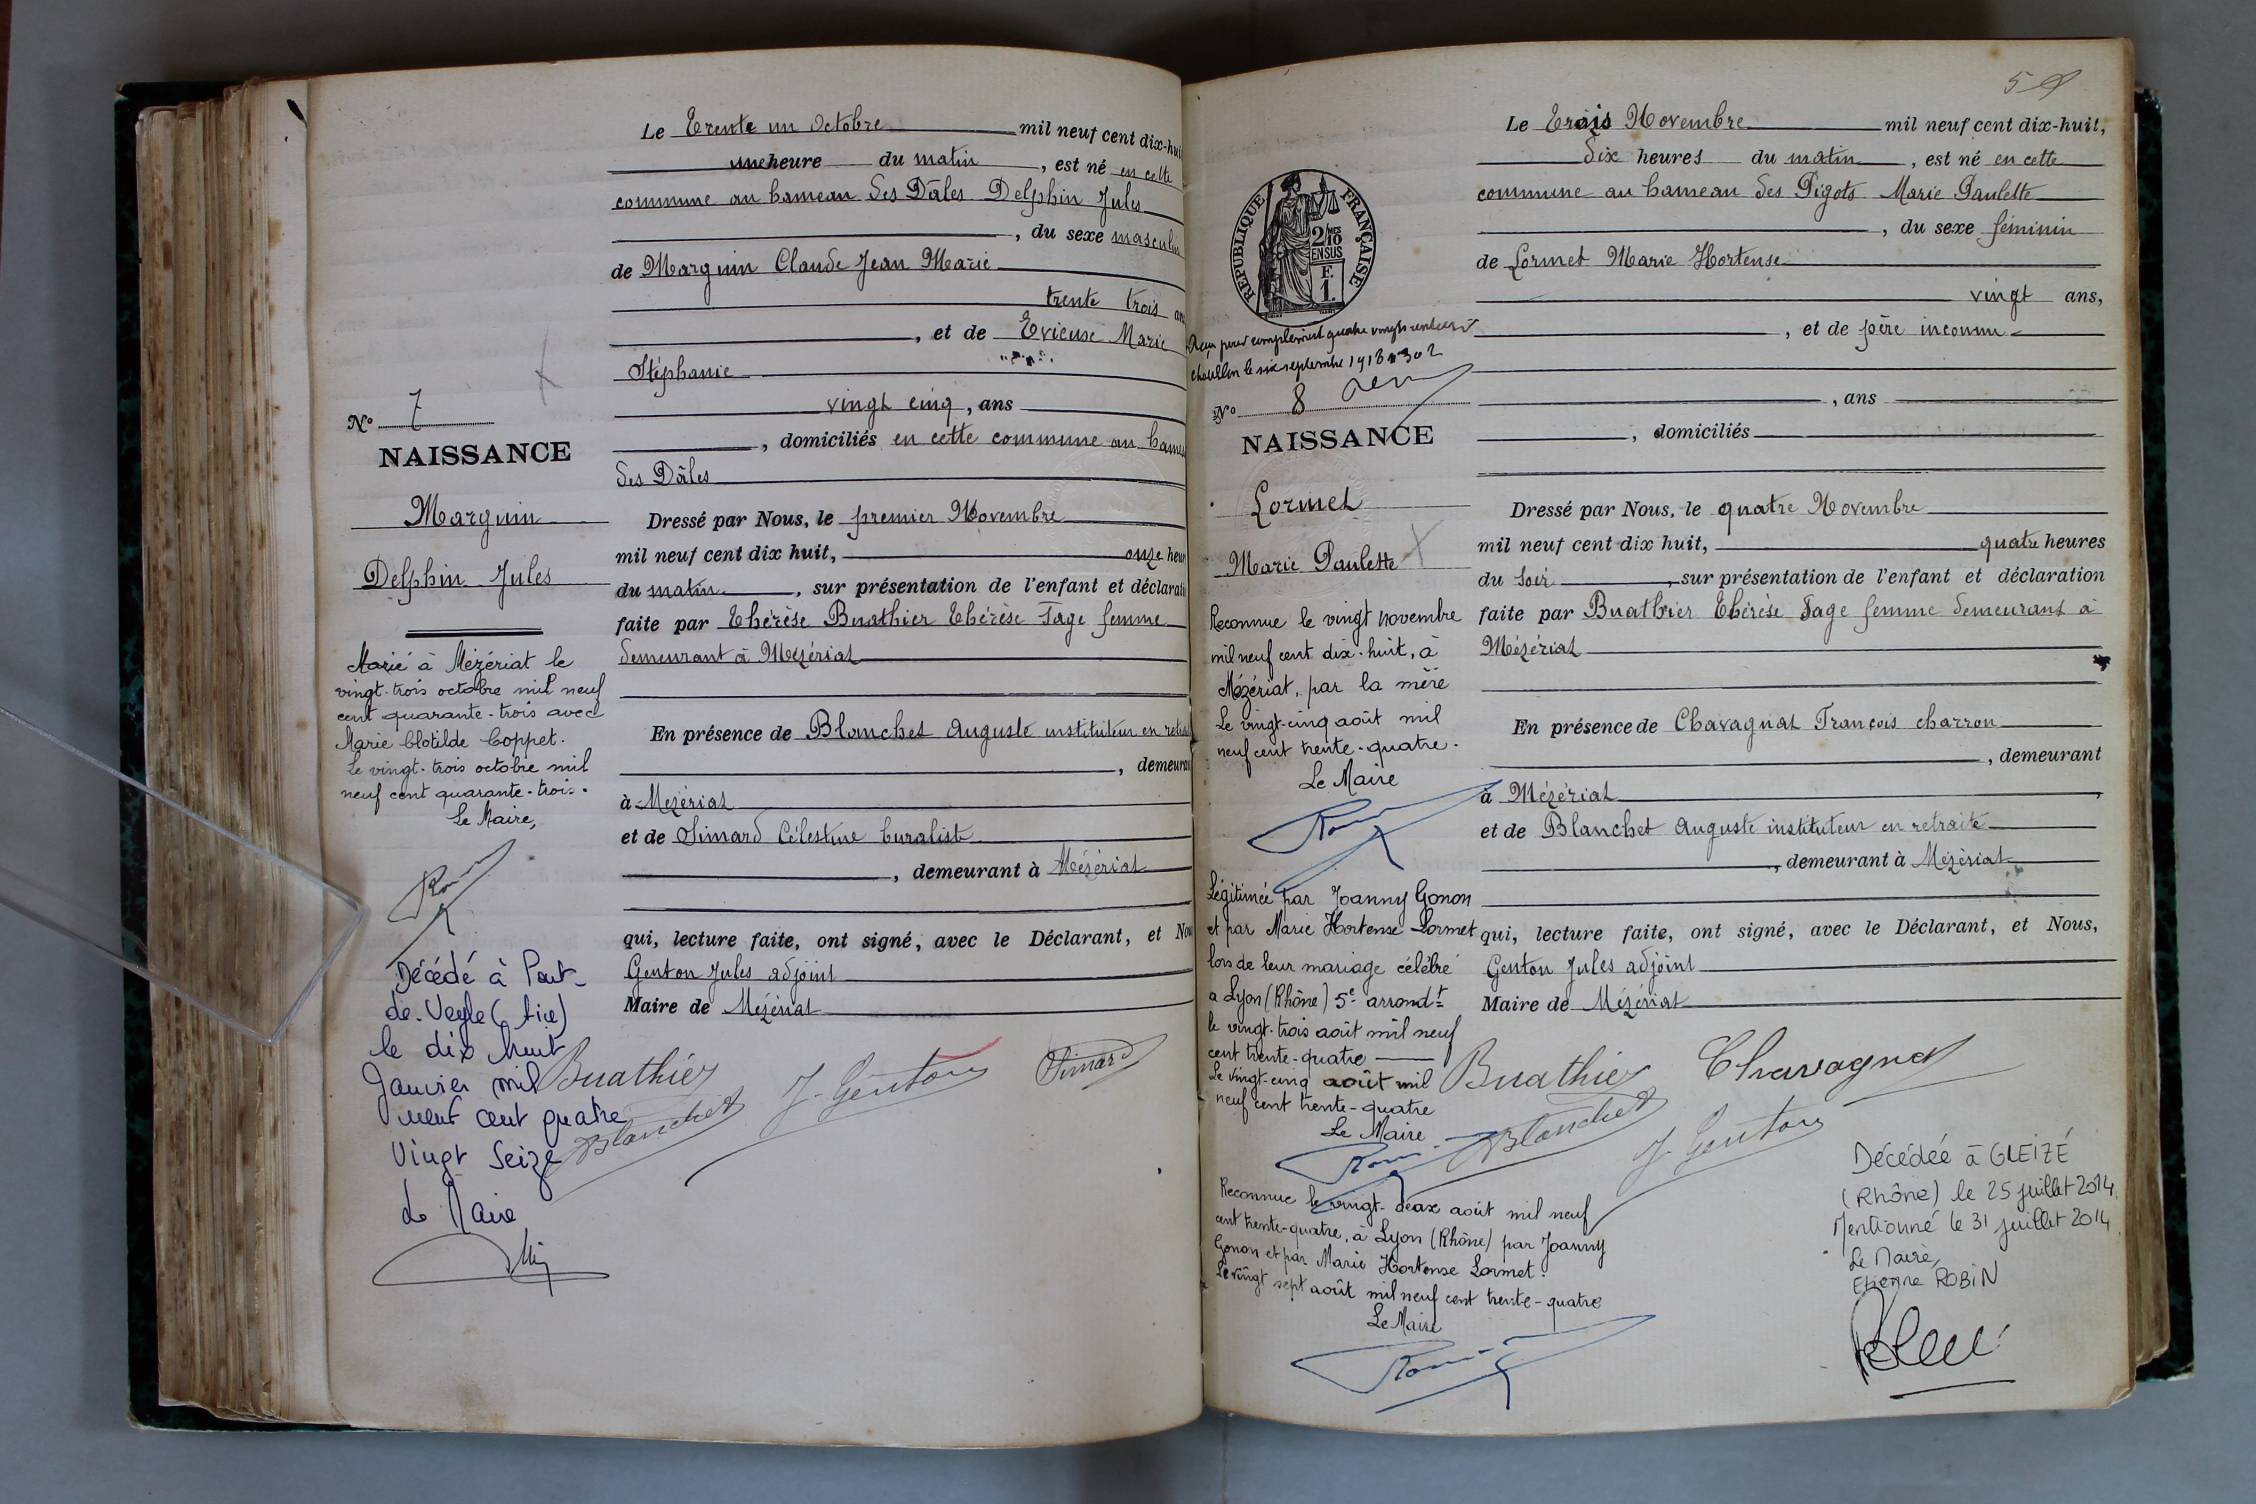 Le Trente un Octobre mil neuf cent dix-hui
une heure du matin, est né en cette
commune au hameau des Dâles Delphin Jules
, du sexe masculin
de Marguin Claude Jean Marie
trente trois an
, et de Evieuse Marie
Stéphanie
vingt cinq, ans
, domiciliés en cette commune au hame
des Dâles
Dressé par Nous, le premier Novembre
mil neuf cent dix huit, onze heur
du matin, sur présentation de l'enfant et déclarati
faite par Thérèse Buathier Thérèse Sage femme
demeurant à Mézériat
En présence de Blanchet Auguste instituteur en retrai
, demeura
à Mézériat
et de Simard Célestine buraliste
, demeurant à Mézériat
qui, lecture faite, ont signé, avec le Déclarant, et Nou
Genton Jules adjoint
Maire de Mézériat
Buathier
J. Genton
Simard
Blanchet
No 7
NAISSANCE
Marguin
Delphin Jules
Marié à Mézériat le
vingt-trois octobre mil neuf
cent quarante-trois avec
Marie Clotilde Coppet.
Le vingt-trois octobre mil
neuf cent quarante-trois.
Le Maire,
Décédé à Pont-
de-Veyle (Ain)
le dix huit
Janvier mil
neuf cent quatre
Vingt Seize
Le Maire
Le Trois Novembre mil neuf cent dix-huit,
dix heures du matin, est né en cette
commune au hameau des Pigots Marie Paulette
, du sexe féminin
de Lormet Marie Hortense
vingt ans,
, et de père inconnu
, ans
, domiciliés
Dressé par Nous, le quatre Novembre
mil neuf cent dix huit, quatre heures
du soir, sur présentation de l'enfant et déclaration
faite par Buathier Thérèse Sage femme demeurant à
Mézériat
En présence de Chavagnat François charron
, demeurant
à Mézériat
et de Blanchet Auguste instituteur en retraite
, demeurant à Mézériat
qui, lecture faite, ont signé, avec le Déclarant, et Nous,
Genton Jules adjoint
Maire de Mézériat
Buathier
Chavagnat
Blanchet
J. Genton
REPUBLIQUE FRANÇAISE
2/10 MES
EN SUS
F.
1.
Reçu pour complément quatre vingts centimes
Chatillon le six septembre 1918 n° 302
No 8
NAISSANCE
Lormet
Marie Paulette
Reconnue le vingt novembre
mil neuf cent dix-huit, à
Mézériat, par la mère
Le vingt-cinq août mil
neuf cent trente-quatre.
Le Maire
Légitimée par Joanny Gonon
et par Marie Hortense Lormet
lors de leur mariage célébré
à Lyon (Rhône) 5e arrondt
le vingt-trois août mil neuf
cent trente-quatre
Le vingt-cinq août mil
neuf cent trente-quatre
Le Maire
Reconnue le vingt-deux août mil neuf
cent trente-quatre, à Lyon (Rhône) par Joanny
Gonon et par Marie Hortense Lormet.
Le vingt sept août mil neuf cent trente-quatre
Le Maire
Décédée à GLEIZÉ
(Rhône) le 25 juillet 2014.
Mentionné le 31 juillet 2014
Le Maire,
Etienne ROBIN